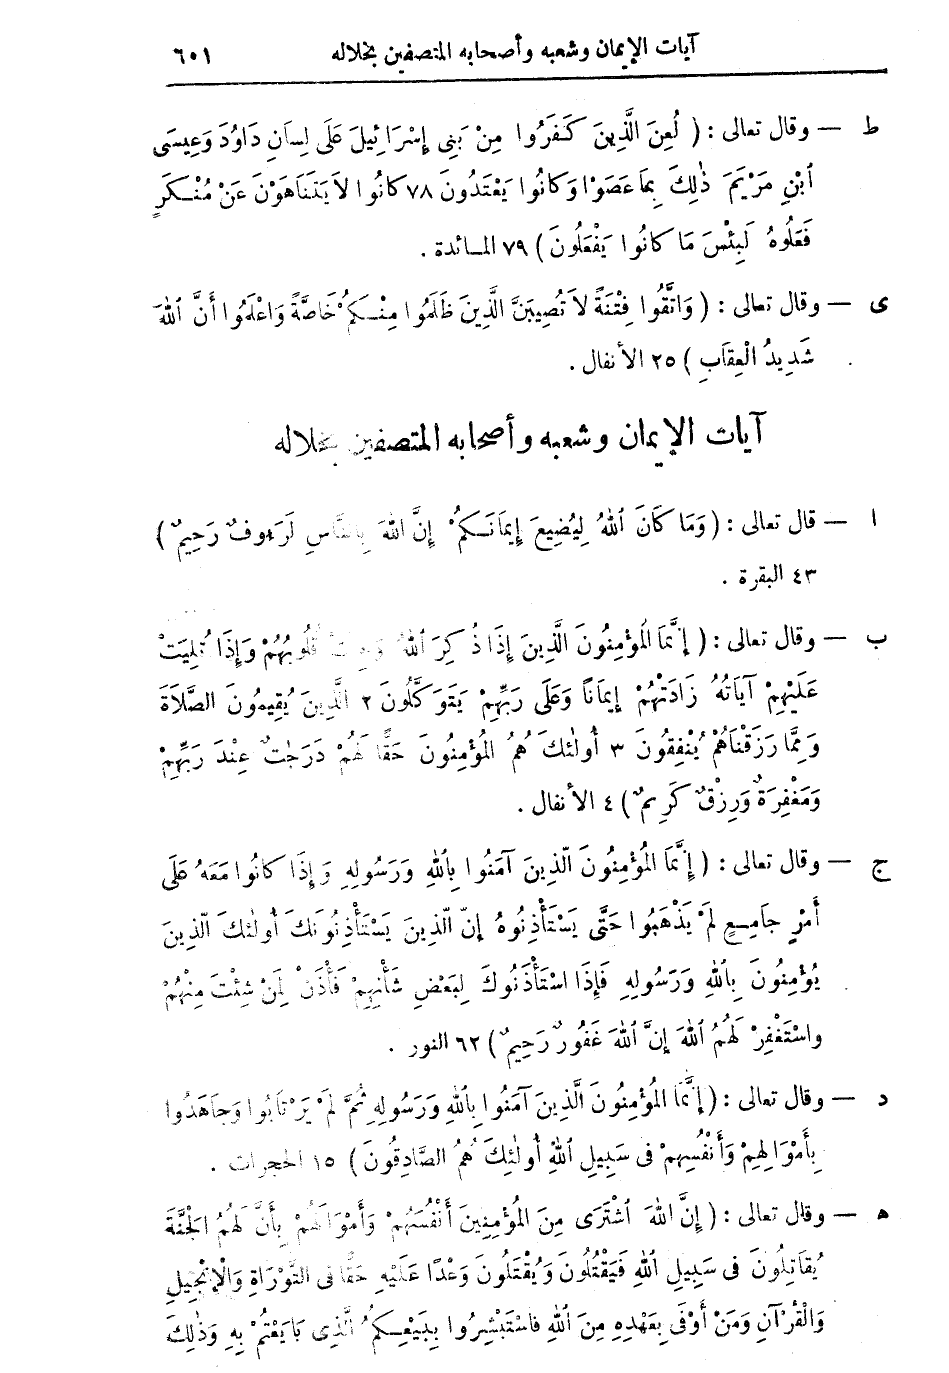 آيات الإيمان وشعبه وأصحابه المتصفين بخلاله ٦٠١
ط — وقال تعالى : ( لُعِنَ الَّذِينَ كَفَرُوا مِنْ بَنِى إِسْرَائِيلَ عَلَى لِسَانِ دَاوُدَ وَعِيسَى
ابْنِ مَرْيَمَ ذٰلِكَ بِمَا عَصَوْا وَكَانُوا يَعْتَدُونَ ٧٨ كانُوا لاَ يَتَنَاهَوْنَ عَنْ مُنْكَرٍ
فَعَلُوهُ لَبِئْسَ مَا كَانُوا يَفْعَلُونَ ) ٧٩ المائدة .
ى — وقال تعالى : ( وَاتَّقُوا فِتْنَةً لاَ تُصِيبَنَّ الَّذِينَ ظَلَمُوا مِنْكُمْ خَاصَّةً وَاعْلَمُوا أَنَّ اللهَ
شَدِيدُ الْعِقَابِ ) ٢٥ الأنفال .
آيات الإيمان وشعبه وأصحابه المتصفين بخلاله
ا — قال تعالى : ( وَمَا كَانَ اللهُ لِيُضِيعَ إِيمَانَكُمْ إِنَّ اللهَ بِالنَّاسِ لَرَءوفٌ رَحِيمٌ )
٤٣ البقرة .
ب — وقال تعالى : ( إِنَّمَا المُؤْمِنُونَ الَّذِينَ إِذَا ذُكِرَ اللهُ وَجِلَتْ قُلُوبُهُمْ وَإِذَا تُلِيَتْ
عَلَيْهِمْ آيَاتُهُ زَادَتْهُمْ إِيمَانًا وَعَلَى رَبِّهِمْ يَتَوَكَّلُونَ ٢ الَّذِينَ يُقِيمُونَ الصَّلَاةَ
وَمِمَّا رَزَقْنَاهُمْ يُنْفِقُونَ ٣ أُولٰئِكَ هُمُ المُؤْمِنُونَ حَقًّا لَهُمْ دَرَجَٰتٌ عِنْدَ رَبِّهِمْ
وَمَغْفِرَةٌ وَرِزْقٌ كَرِيمٌ ) ٤ الأنفال .
ج — وقال تعالى : ( إِنَّمَا المُؤْمِنُونَ الَّذِينَ آمَنُوا بِاللهِ وَرَسُولِهِ وَإِذَا كَانُوا مَعَهُ عَلَى
أَمْرٍ جَامِعٍ لَمْ يَذْهَبُوا حَتَّى يَسْتَأْذِنُوهُ إِنَّ الَّذِينَ يَسْتَأْذِنُونَكَ أُولٰئِكَ الَّذِينَ
يُؤْمِنُونَ بِاللهِ وَرَسُولِهِ فَإِذَا اسْتَأْذَنُوكَ لِبَعْضِ شَأْنِهِمْ فَأْذَنْ لِمَنْ شِئْتَ مِنْهُمْ
واسْتَغْفِرْ لَهُمُ اللهَ إِنَّ اللهَ غَفُورٌ رَحِيمٌ ) ٦٢ النور .
د — وقال تعالى : ( إِنَّمَا المُؤْمِنُونَ الَّذِينَ آمَنُوا بِاللهِ وَرَسُولِهِ ثُمَّ لَمْ يَرْتَابُوا وَجَاهَدُوا
بِأَمْوَالِهِمْ وَأَنْفُسِهِمْ فى سَبِيلِ اللهِ أُولٰئِكَ هُمُ الصَّادِقُونَ ) ١٥ الحجرات .
ه — وقال تعالى : ( إِنَّ اللهَ اشْتَرَى مِنَ المُؤْمِنِينَ أَنْفُسَهُمْ وَأَمْوَالَهُمْ بِأَنَّ لَهُمُ الجَنَّةَ
يُقَاتِلُونَ فى سَبِيلِ اللهِ فَيَقْتُلُونَ وَيُقْتَلُونَ وَعْدًا عَلَيْهِ حَقًّا فى التَّوْرَاةِ وَالْإِنْجِيلِ
وَالْقُرْآنِ وَمَنْ أَوْفَى بِعَهْدِهِ مِنَ اللهِ فَاسْتَبْشِرُوا بِبَيْعِكُمُ الَّذِى بَايَعْتُمْ بِهِ وَذٰلِكَ